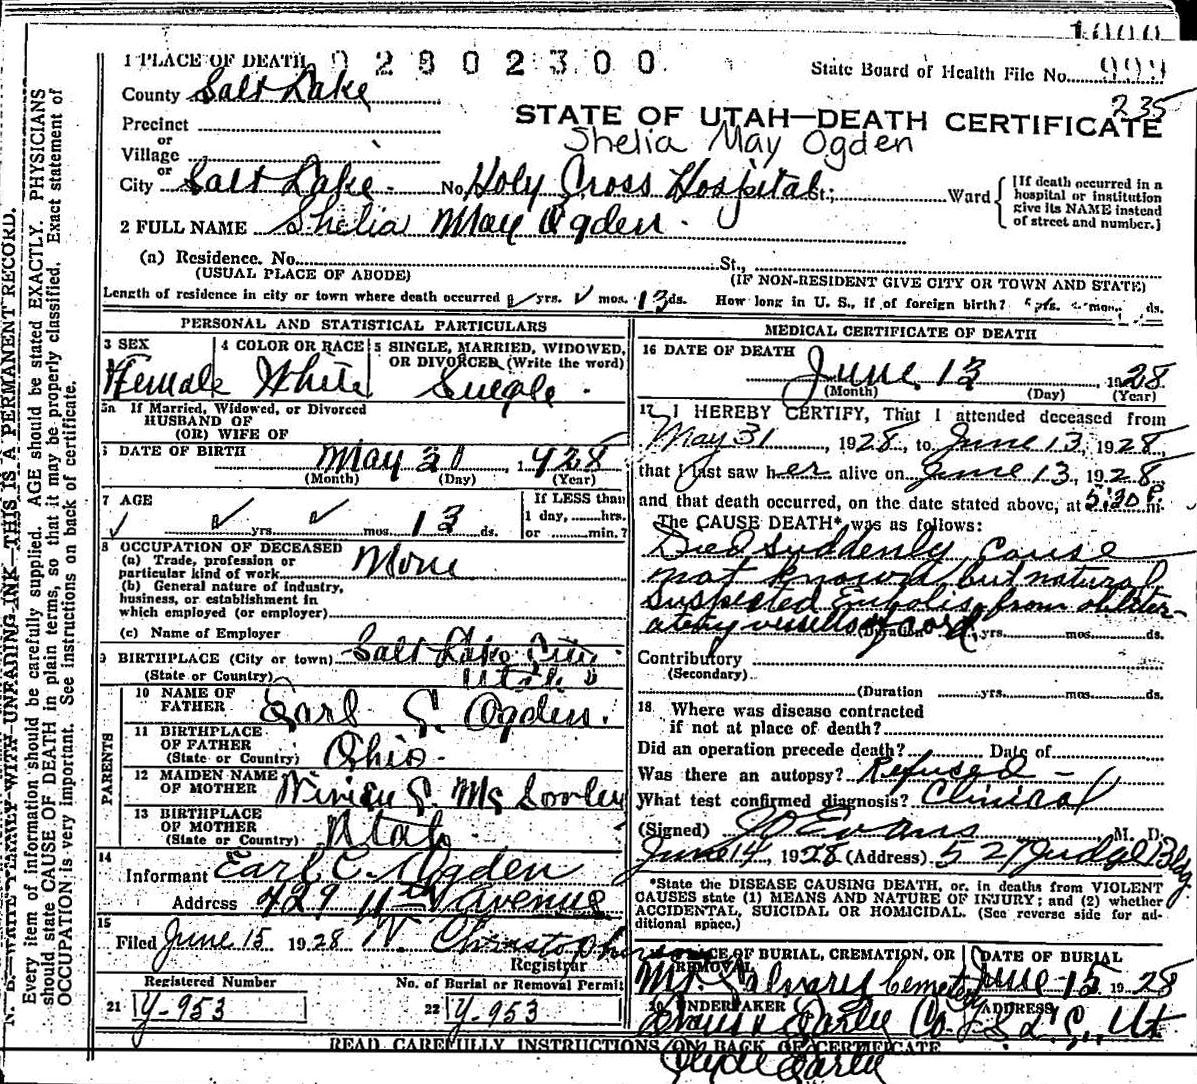 1 PLACE OF DEATH 02802300
State Board of Health File No. 999
235
County Salt Lake
STATE OF UTAH—DEATH CERTIFICATE
Precinct
Shelia May Ogden
or
Village
or
City Salt Lake No. Holy Cross Hospital St.; Ward
[If death occurred in a hospital or institution give its NAME instead of street and number.]
2 FULL NAME Shelia May Ogden
(a) Residence. No. St.,
(USUAL PLACE OF ABODE) (IF NON-RESIDENT GIVE CITY OR TOWN AND STATE)
Length of residence in city or town where death occurred yrs. mos. 13 ds. How long in U. S., if of foreign birth? yrs. mos. ds.
PERSONAL AND STATISTICAL PARTICULARS
3 SEX 4 COLOR OR RACE 5 SINGLE, MARRIED, WIDOWED, OR DIVORCED (Write the word)
Female White Single
5a If Married, Widowed, or Divorced
HUSBAND OF
(OR) WIFE OF
6 DATE OF BIRTH May 30, 1928
(Month) (Day) (Year)
7 AGE
yrs. mos. 13 ds.
If LESS than
1 day, hrs.
or min.?
8 OCCUPATION OF DECEASED
(a) Trade, profession or
particular kind of work None
(b) General nature of industry,
business, or establishment in
which employed (or employer)
(c) Name of Employer
9 BIRTHPLACE (City or town) Salt Lake City
(State or Country) Utah
PARENTS
10 NAME OF FATHER Earl C. Ogden.
11 BIRTHPLACE OF FATHER
(State or Country) Ohio.
12 MAIDEN NAME OF MOTHER
13 BIRTHPLACE OF MOTHER
(State or Country) Utah.
14
Informant Earl C. Ogden
Address 429 11th Avenue
15
Filed June 15 1928
Registrar
Registered Number No. of Burial or Removal Permit
21 Y-953 22 Y-953
MEDICAL CERTIFICATE OF DEATH
16 DATE OF DEATH
June 13, 1928
(Month) (Day) (Year)
17 I HEREBY CERTIFY, That I attended deceased from
May 31, 1928, to June 13, 1928,
that I last saw her alive on June 13, 1928,
and that death occurred, on the date stated above, at 5:30 P. m.
The CAUSE DEATH*, was as follows:
Died suddenly cause
not known, but natural
suspected Embolis from obliter-
atery vessells of cord,
(Duration) yrs. mos. ds.
Contributory
(Secondary)
(Duration yrs. mos. ds.
18 Where was disease contracted
if not at place of death?
Did an operation precede death? Date of
Was there an autopsy? Refused -
What test confirmed diagnosis? Clinical
(Signed) J O Evans M. D.
June 14, 1928 (Address) 527 Judge Bldg
*State the DISEASE CAUSING DEATH, or, in deaths from VIOLENT
CAUSES state (1) MEANS AND NATURE OF INJURY; and (2) whether
ACCIDENTAL, SUICIDAL OR HOMICIDAL. (See reverse side for ad-
ditional space.)
PLACE OF BURIAL, CREMATION, OR REMOVAL DATE OF BURIAL
Mt. Calvary Cemetery June 15 1928
20 UNDERTAKER ADDRESS
Evans & Early Co. S. L. C., Ut
READ CAREFULLY INSTRUCTIONS ON BACK OF CERTIFICATE
Clyde Early
N. B.—WRITE PLAINLY WITH UNFADING INK—THIS IS A PERMANENT RECORD.
Every item of information should be carefully supplied. AGE should be stated EXACTLY. PHYSICIANS
should state CAUSE OF DEATH in plain terms, so that it may be properly classified. Exact statement of
OCCUPATION is very important. See instructions on back of certificate.